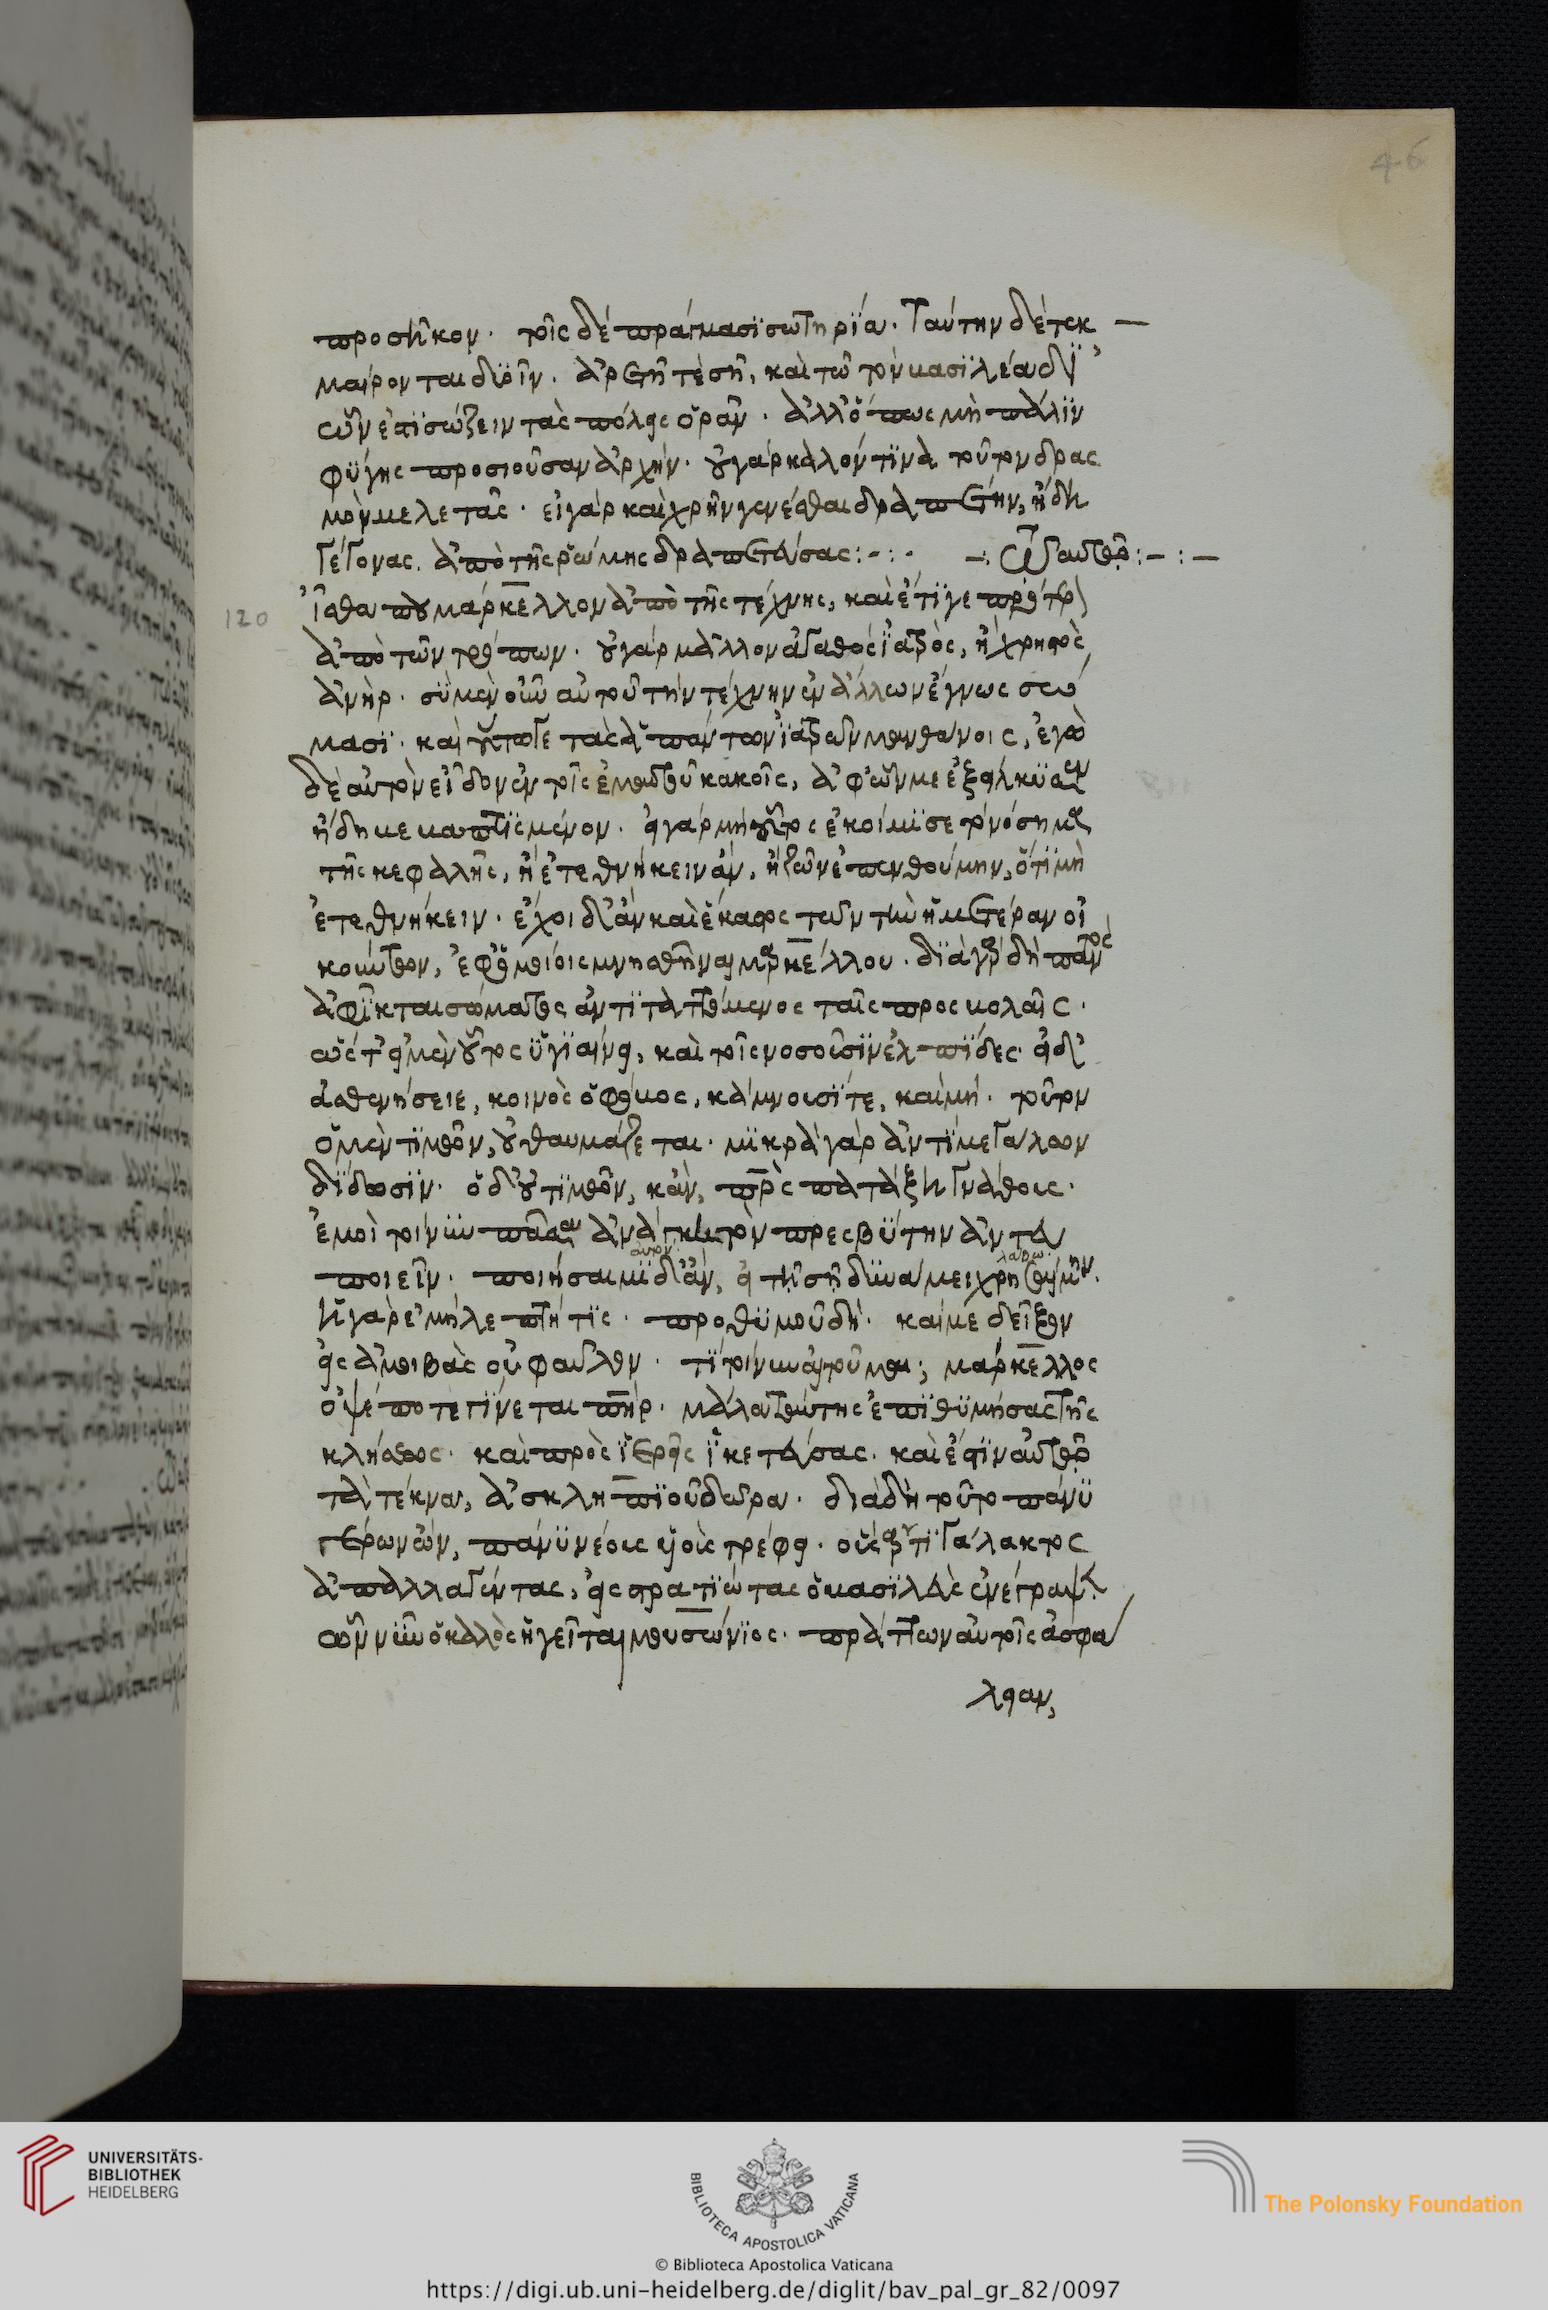 46
προσῆκον. τοῖς δὲ πράγμασι σωτηρία. Ταύτην δὲ τεκ
μαίρονται δυοῖν. ἀρετῇ τε σῇ, καὶ τῷ τὸν βασιλέα δι᾽
ὧν ἐπισώζειν τὰς πόλεις ὁρᾶν. ἀλλ᾽ ὅπως μὴ πάλιν
φύγῃς προσιοῦσαν ἀρχήν. οὐ γὰρ καλόν τινα τοῦτον δρασ
μὸν μελετᾶς. εἰ γὰρ καὶ χρῆν γενέσθαι δραπέτην, ἤδη
γέγονας. ἀπὸ τῆς ῥώμης δραπετεύσας :-:· -: Τῷ αὐτῷ :-:-
120
Ἦσθά που μάρκελλον ἀπὸ τῆς τέχνης, καὶ ἔτι γε πρότερον
ἀπὸ τῶν τρόπων. οὐ γὰρ μᾶλλον ἀγαθὸς ἰατρὸς, ἢ χρηστὸς
ἀνὴρ. σὺ μὲν οὖν αὐτοῦ τὴν τέχνην ἐν ἄλλων ἔγνως σώ
μασι. καὶ τὰς ἁπάντων ἰατρῶν μανθάνοις, ἐγὼ
δὲ αὐτὸν εἶδον ἐν τοῖς ἐμαυτοῦ κακοῖς, ἀφ᾽ ὧν με ἐξείλκυσεν
ἤδη βεβαπτισμένον. εἰ γὰρ μὴ οὗτος ἐκοίμισε τὸ νόσημα
τῆς κεφαλῆς, ἢ ἐτεθνήκειν ἂν, ἢ ζῶν ἐπενθούμην, ὅτι μὴ
ἐτεθνήκειν. ἔχοι δ᾽ ἂν καὶ ἕκαστος τῶν τὴν ἡμετέραν οἰ
κούντων, ἐφ᾽ ὁμοίοις μνησθῆναι μαρκέλλου. διὰ γὰρ δὴ παντὸς
ἀφῖκται σώματος ἀντιταττόμενος ταῖς προσβολαῖς.
ὥστ᾽ εἰ μὲν οὗτος ὑγιαίνει, καὶ τοῖς νοσοῦσιν ἐλπίδες. εἰ δ᾽
ἀσθενήσειε, κοινὸς ὁ φόβος, κάμνουσί τε, καὶ μή. τοῦτον
ὁ μὲν τιμῶν, οὐ θαυμάζεται. μικρὰ γὰρ ἀντὶ μεγάλων
δίδωσιν. ὁ δ᾽ οὐ τιμῶν, κἂν, πρὸς πατάξῃ γνάθοις.
ἐμοὶ τοίνυν πᾶσα ἀνάγκη τὸν πρεσβύτην ἀντευ
ποιεῖν. ποιήσαιμι δ᾽ ἂν, εἰ τῇ σῇ δυνάμει χρησαίμην.
αὐτὸν
λάβω
ἢ γὰρ ἐμὴ λεπτή τις. προθυμοῦ δὴ. καί με δεῖξον
εἰς ἀμοιβὰς οὐ φαῦλον. τί τοίνυν αἰτοῦμαι; μάρκελλος
ὀψέ ποτε γίνεται πατήρ. μάλα τούτης ἐπιθυμήσας τῆς
κλήσεως. καὶ πρὸς ἱεροῖς ἱκετεύσας. καὶ ἔστιν αὐτῷ
τὰ τέκνα, ἀσκληπιοῦ δῶρα. διὰ δὴ τοῦτο πάνυ
γέρων ὢν, πάνυ νέους υἱοὺς τρέφει. οὓς ἄρτι γάλακτος
ἀπαλλαγέντας, εἰς στρατιώτας ὁ βασιλεὺς ἐνέγραψεν
ὧν νῦν ὁ καλὸς ἡγεῖται μουσώνιος. πράττων αὐτοῖς ἀσφα
λειαν,
UNIVERSITÄTS-
BIBLIOTHEK
HEIDELBERG
BIBLIOTECA APOSTOLICA VATICANA
The Polonsky Foundation
© Biblioteca Apostolica Vaticana
https://digi.ub.uni-heidelberg.de/diglit/bav_pal_gr_82/0097